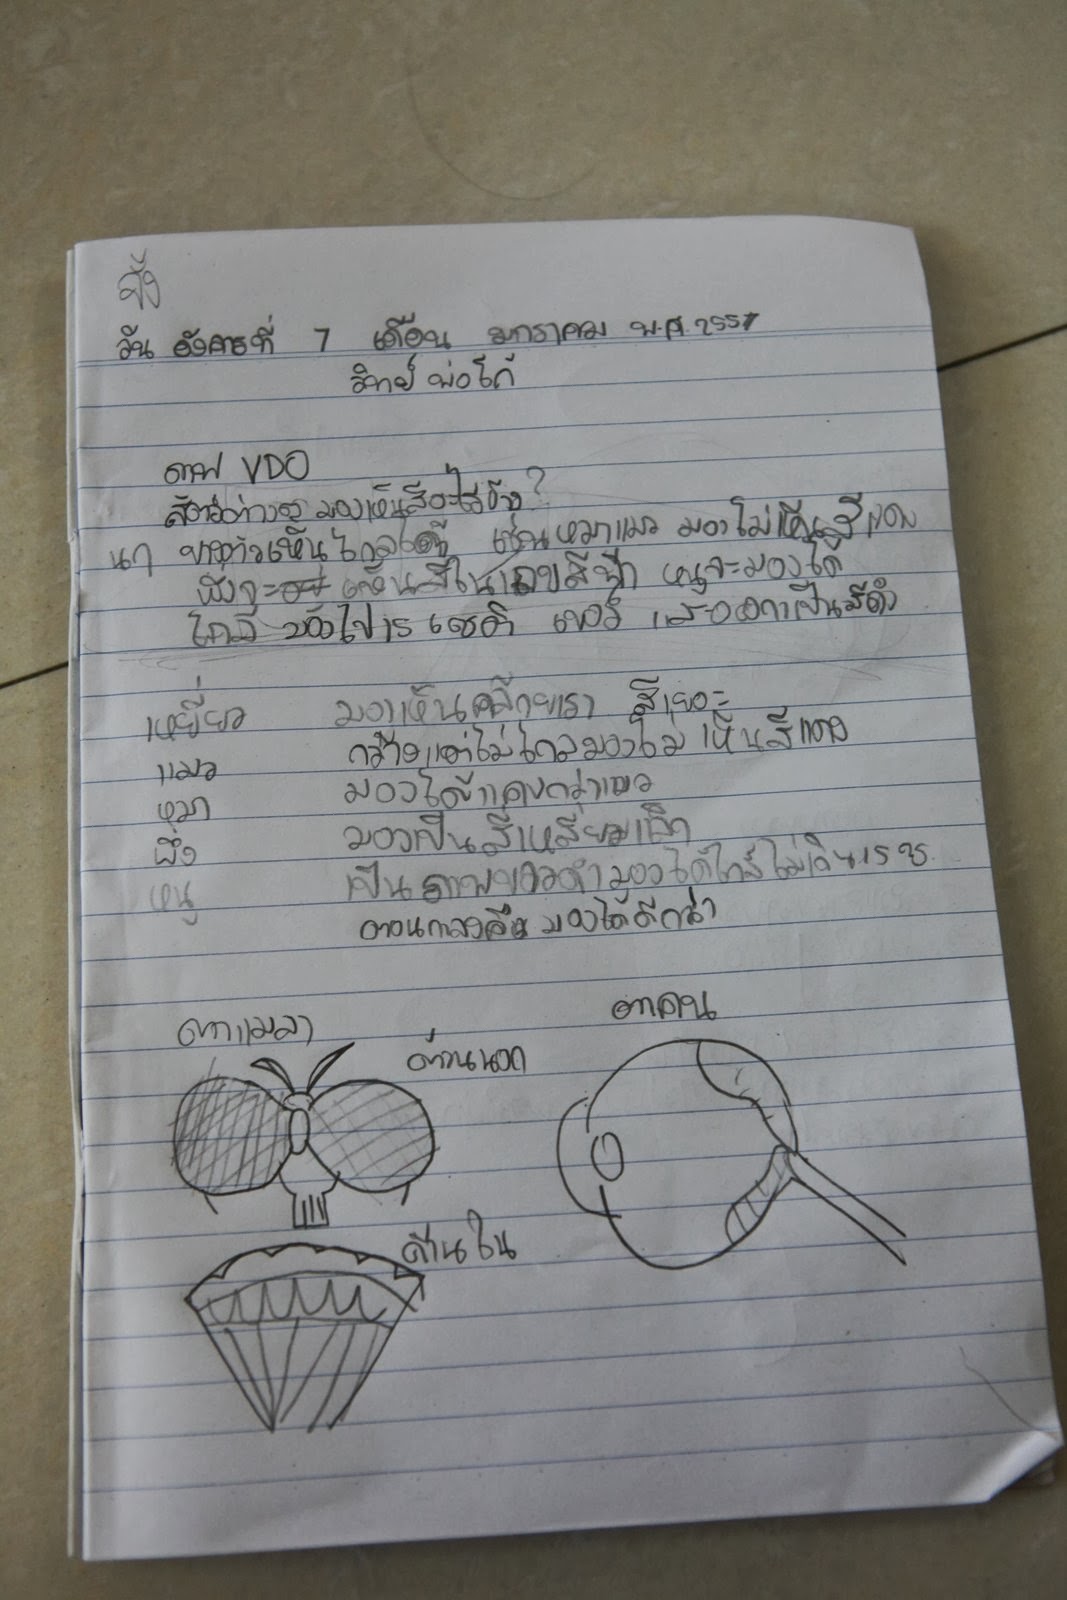 วัน อังคารที่ 7 เดือน มกราคม พ.ศ. 2557
วิทย์ พ่อโก้
ภาพ VDO
สัตว์ต่างๆ มองเห็นสีอะไรบ้าง?
นก เห็นไกล เช่นหมาแมว มองไม่เห็นสีแดง
ผึ้งจะ เห็นสีใน สีฟ้า หนูจะมองได้
ไกลสุด 15 เซติ เมตร และออกเป็นสีดำ
เหยี่ยว มองเห็นคล้ายเรา สีเยอะ
แมว กว้างแต่ไม่ไกลมองไม่เห็นสีแดง
หมา มองได้แคบกว่าแมว
ผึ้ง มองเป็นสี่เหลี่ยมเล็ก
หนู เป็นภาพขาวดำ มองได้ใกล้ไม่เกิน 15 ซ.
ตอนกลางคืน มองได้ดีกว่า
ตาแมลง
ด้านนอก
ตาคน
ด้านใน